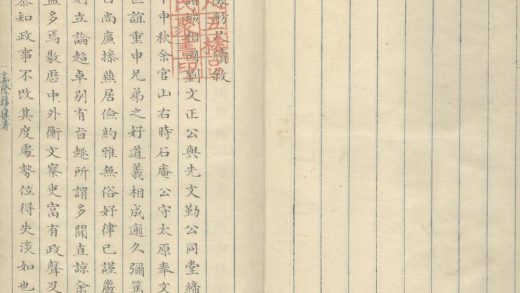 相國劉文正公與先文勤公同堂締
申秋余官山右時石庵公守太原奉文
誼重申兄弟之好道義相成逾久彌篤
尚廣搽燕居儉約雅無俗好律已謹嚴
好立論超卓別有旨趣所謂多聞直諒余
益多焉敭歷中外衡文察吏富有政聲及
恭知政事不改其度處勢位得失淡如也